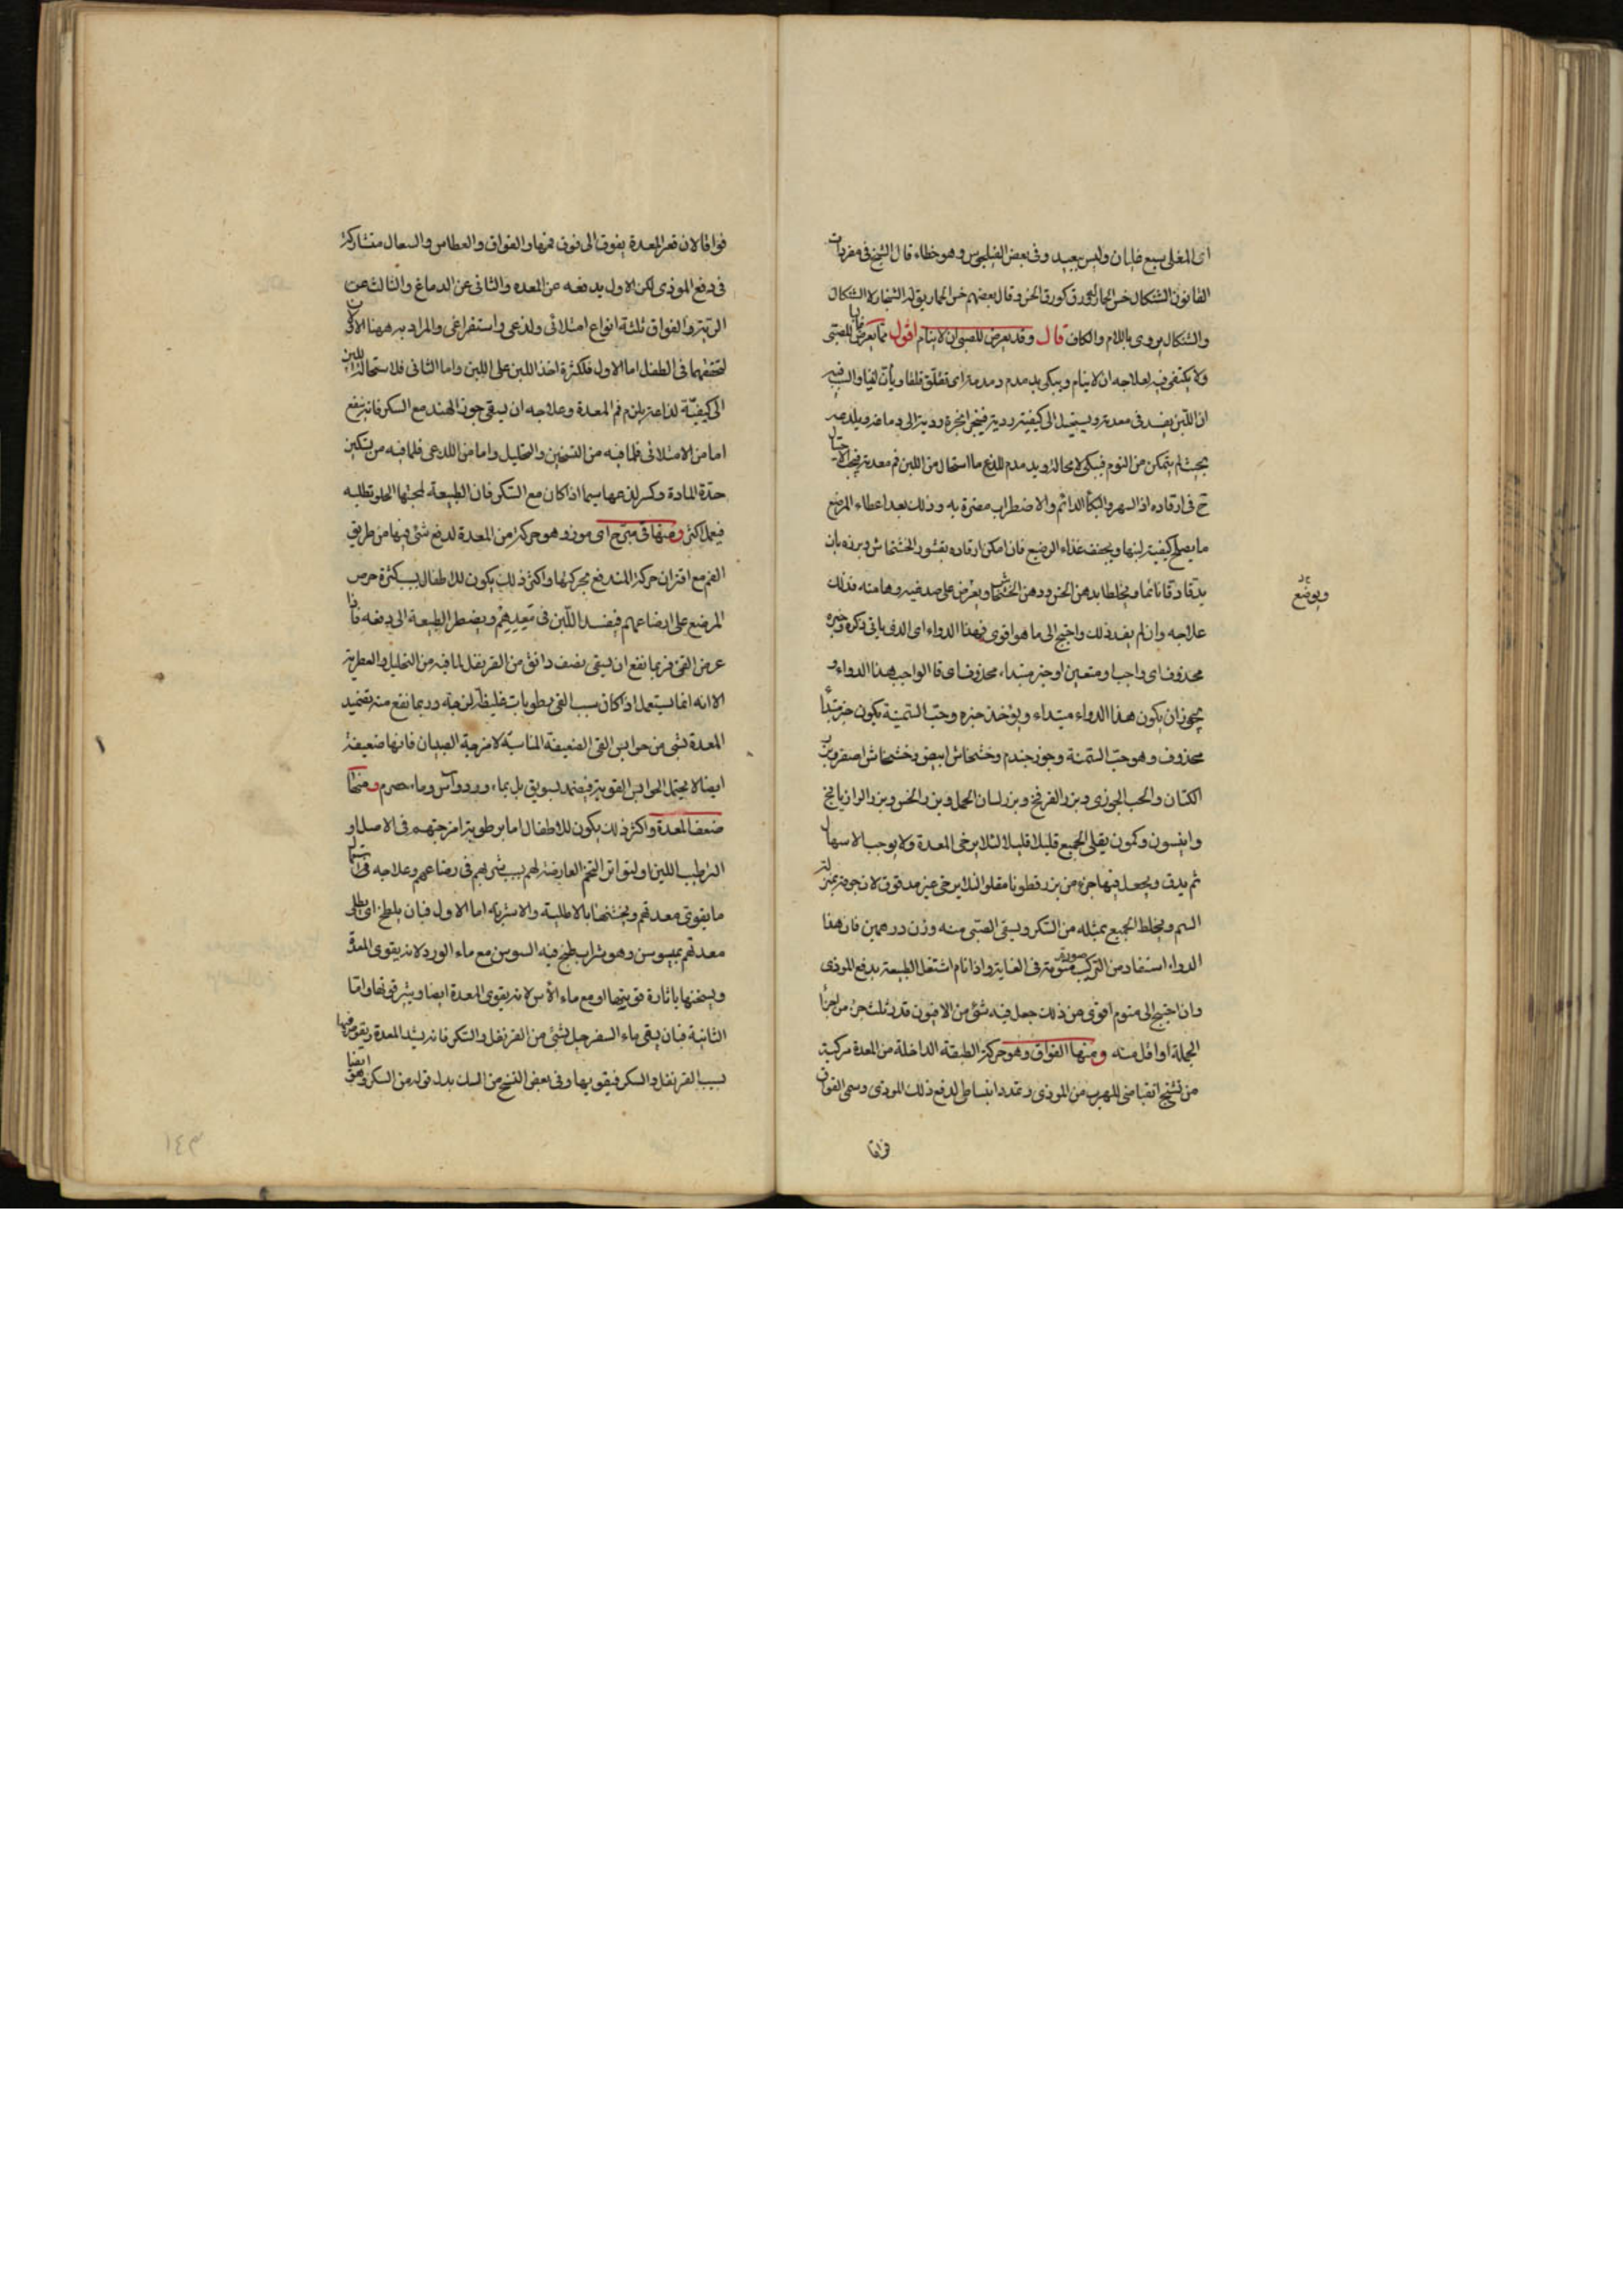 اى المغلى سبع غليان وليس ببعيد وفى بعض الفيلجوس وهو خطاء قال الشيخ فى مفردات
القانون الشنكال خس الحمار له ورق كورق الخس وقال بعضهم خس الحمار يق له الشنجار لا الشنكال
والشنكال يروى باللام والكاف قال وقد يعرض للصبى ان لا ينام اقول مما يعرض للصبى
ولا يكتفى فيه بعلاجه ان لا ينام ويبكى يدمدم ودمدمة اى تقلق قلقا والسبب فيه
ان اللبن يفسد فى معدته ويستحيل الى كيفية ردية فينجر ابخرة ردية الى دماغه ويلدعه
بحيث لم يتمكن من النوم فيبكى لا محالة ويدمدم للذع ما استحال من اللبن فم معدته فيجب الاحتيال
ح فى ارقاده اذ السهر والبكاء الدائم والاضطراب مضرة به وذلك بعد اعطاء المرضع
ما يصلح كيفية لبنها ويجفف غذاء الرضيع فان امكن ارقاده بقشور الخشخاش وبرزه بان
يدقا دقا ناعما ويخلطا بدهن الخس ودهن الخشخاش ويعرض على صدغيه وهامته فذلك
ويوضع
علاجه وان لم يفد ذلك واحتيج الى ما هو اقوى فهذا الدواء اى الذى ياتى ذكره وخبره
محذوف اى واجب او متعين او خبر مبتداء محذوف اى فا الواجب هذا الدواء و
يجوز ان يكون هذا الدواء مبتداء ويؤخذ خبره وحب السمنة يكون خبر مبتدأ
محذوف وهو حب السمنة وجوز جندم وخشخاش ابيض وخشخاش اصفر وبزر
الكتان والحب الجوزى وبزر الفرفخ وبزر لسان الحمل وبزر الخس وبزر الرازيانج
وانيسون وكمون يقلى الجميع قليلا قليلا لئلا يرخى المعدة ولا يوجب الاسهال
ثم يدق ويجعل فيها جزء من بزر قطونا مقلوا لئلا يرخى غير مدقوق لان جوفه بمنزلة
السم ويخلط الجميع بمثله من السكر ويسقى الصبى منه وزن درهمين فان هذا
الدواء استفاد من التركيب صورة منومة فى الغاية واذا نام اشتغل الطبيعة بدفع الموذى
وان احتيج الى منوم اقوى من ذلك جعل فيه شئ من الافيون قدر ثلث جزء من اجزا
الجملة او اقل منه ومنها الفواق وهو حركة الطبقة الداخلة من المعدة مركبة
من تشنج انقباضى للهرب من الموذى وتمدد انبساطى لدفع ذلك الموذى وسمى الفواق
فواقا
فواقا لان قعر المعدة يفوق الى فوق فمها والفواق والعطاس والسعال متشاركة
فى دفع الموذى لكن الاول يدفعه عن المعده والثانى عن الدماغ والثالث عن
الرئة والفواق ثلثة انواع امتلائى ولذعى واستفراغى والمراد به ههنا الاولان
لتحققهما فى الطفل اما الاول فلكثرة اخذ اللبن على اللبن واما الثانى فلاستحالة اللبن
الى كيفية لذاعة يلزم فم المعدة وعلاجه ان يسقى جوز الهند مع السكر فانه ينفع
اما من الامتلائى فلما فيه من التسخين والتحليل واما من اللذعى فلما فيه من تسكين
حدة المادة وكسر لذعها سيما اذا كان مع السكر فان الطبيعة لمحبتها الحلو تطلبه
فيعمل اكثر ومنها قى مبرح اى موذ وهو حركة من المعدة لدفع شئ فيها من طريق
الفم مع اقتران حركة المندفع بحركتها واكثر ذلك يكون للاطفال بسبب كثرة حرص
المرضع على ارضاعهم فيفسد اللبن فى معدهم ويضطر الطبيعة الى دفعه فاذا
عرض القئ فربما نفع ان يسقى نصف دانق من القرنفل لما فيه من التحليل والعطرية
الا انه انما يستعمل اذا كان سبب القئ رطوبات غليظة لزجة وربما نفع منه تضميد
المعدة بشى من حوابس القئ الضعيفة المناسبة لامزجة الصبيان فانها ضعيفة
ايضا لا يحتمل الحوابس القوية فيضمد بسويق بل بماء ورد وآس وماء حصرم ومنها
ضعف المعدة واكثر ذلك يكون للاطفال اما برطوبة امزجتهم فى الاصل او
الترطيب اللبن او لتواتر التخم العارضة لهم بسبب شرههم فى رضاعهم وعلاجه استعمال
ما يقوى معدتهم ويخشنها بالاطلية والاشربة اما الاول فبان يلطخ اى يطلى
معدتهم بميسوسن وهو شراب طبخ فيه السوسن مع ماء الورد لانه يقوى المعدة
ويسخنها باثارة قوتها او مع ماء الآس لانه يقوى المعدة ايضا ويثير قوتها واما
الثانية فبان يسقى ماء السفرجل بشئ من القرنفل والسكر فانه يشد المعدة ويقويها
بسبب القرنفل والسكر فيقويها وفى بعض النسخ من السك بدل قوله من السكر وهو ايضا